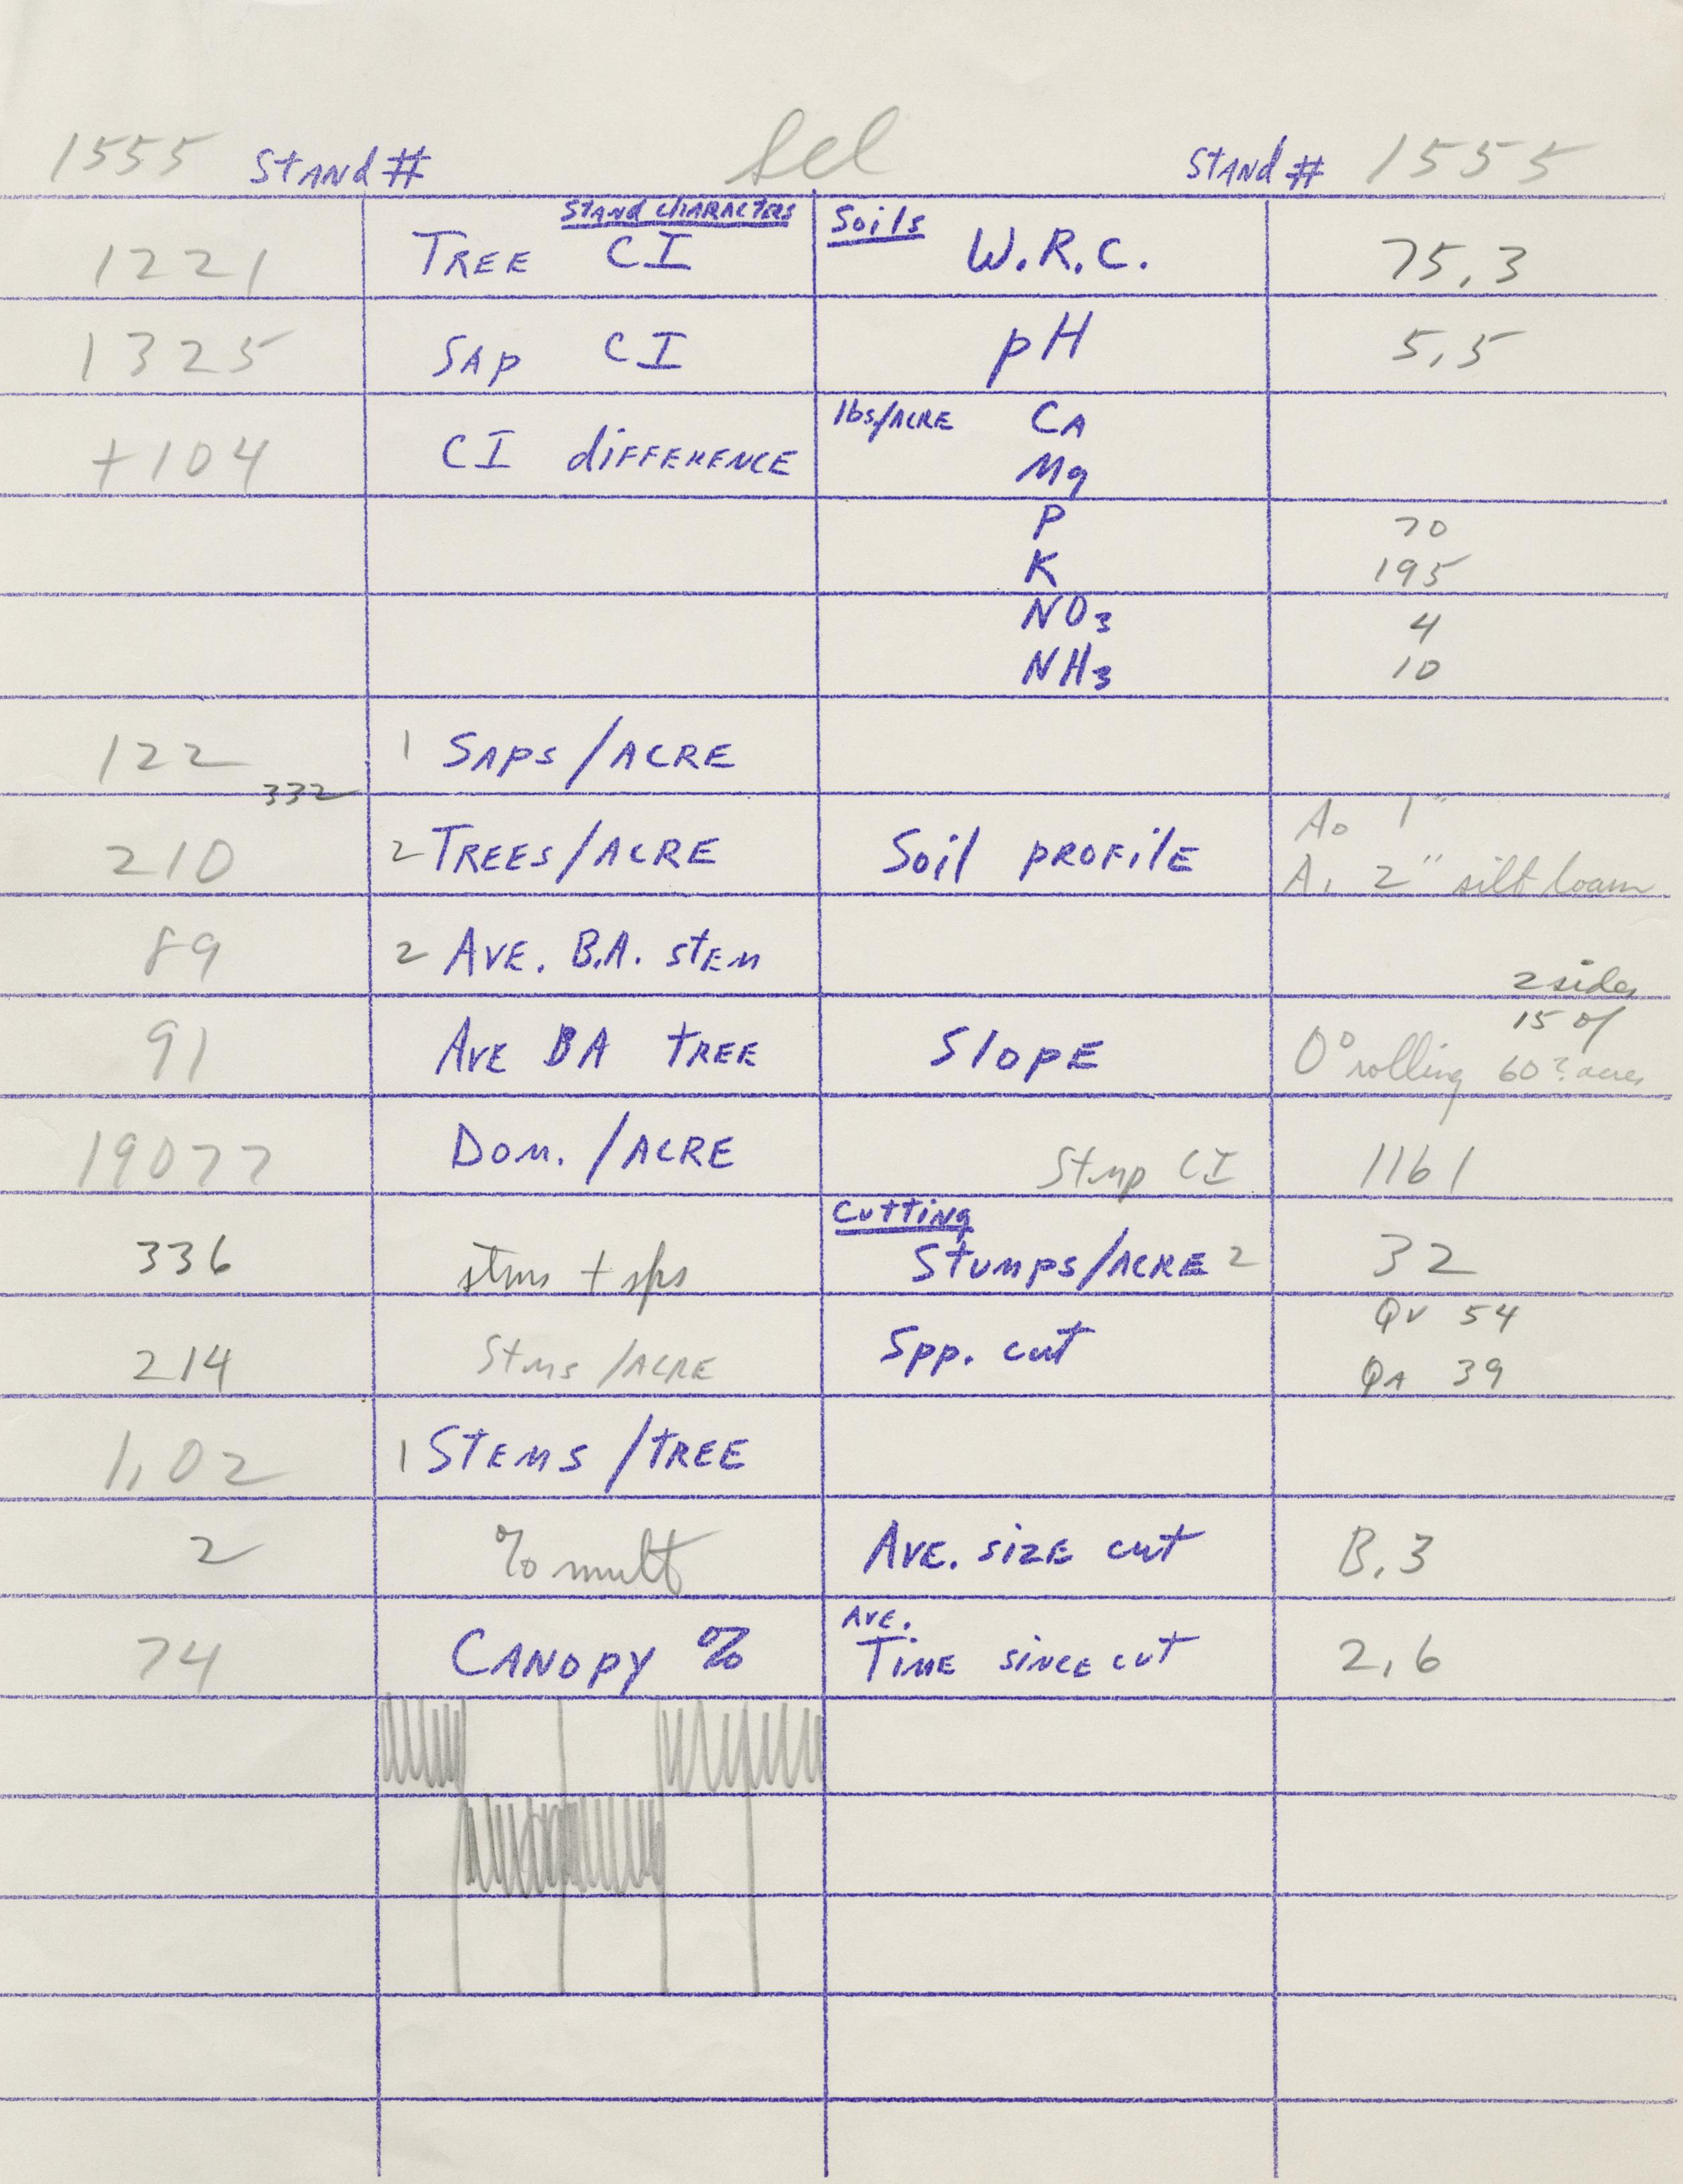 1555 Stand # Sel Stand # 1555
Stand characters Soils
1221 Tree CI W.R.C. 75.3
1325 Sap CI pH 5.5
lbs/acre Ca
+104 CI difference
Mg
P 70
K 195
NO3 4
NH3 10
122 1 Saps/acre
332
A0 1"
210 2 Trees/acre Soil profile
A1 2" silt loam
89 2 Ave. B.A. stem
2 sides
15 of
91 Ave BA tree Slope 0° rolling 60? acres
19077 Dom./acre Stmp CI 1161
Cutting
336 stms + sps Stumps/acre 2 32
QV 54
214 Stms/acre Spp. cut
QA 39
1.02 1 Stems/tree
2 % mult Ave. size cut B.3
Ave.
74 Canopy % Time since cut 2.6